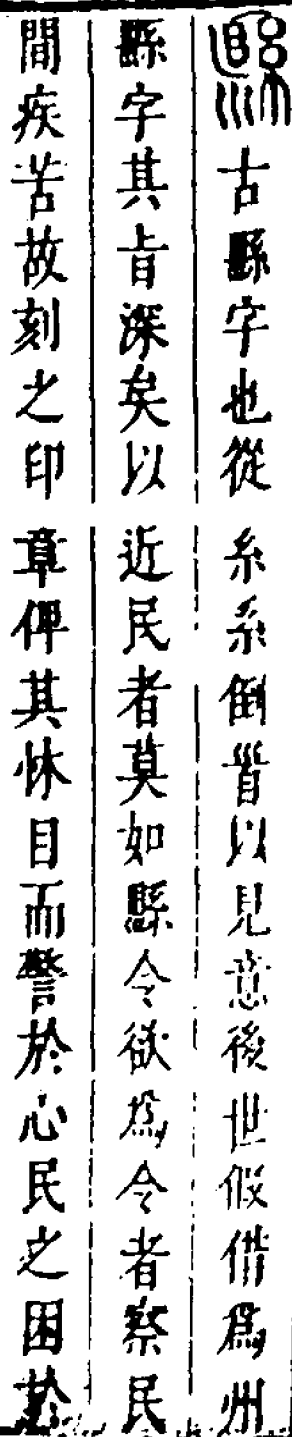 古縣字也從糸系倒𥄉以見意後世假借爲州
縣字其旨深矣以近民者莫如縣令欲爲令者察民
間疾苦故刻之印章俾其怵目而警於心民之困於